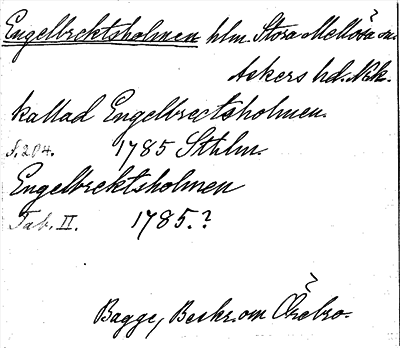 Engelbrektsholmen hlm. Stora Mellösa sn.
Askers hd. Nke.
kallad Engelbrectsholmen.
s. 204. 1785 Sthlm.
Engelbrektsholmen
Tab. II. 1785.?
Bagge, Beskr. om Örebro.